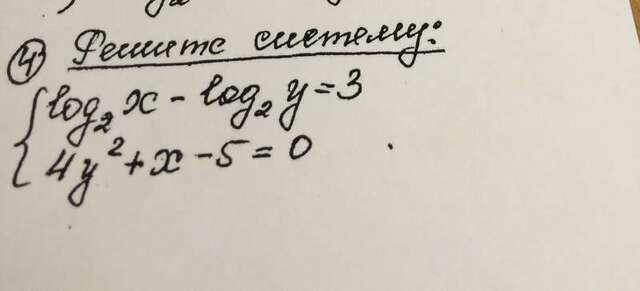 ④ Решите систему:
log₂x - log₂y = 3
4y² + x - 5 = 0